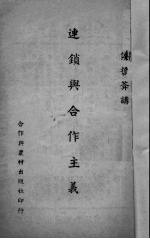 侯哲葊講
連鎖與合作主義
合作與農村出版社印行